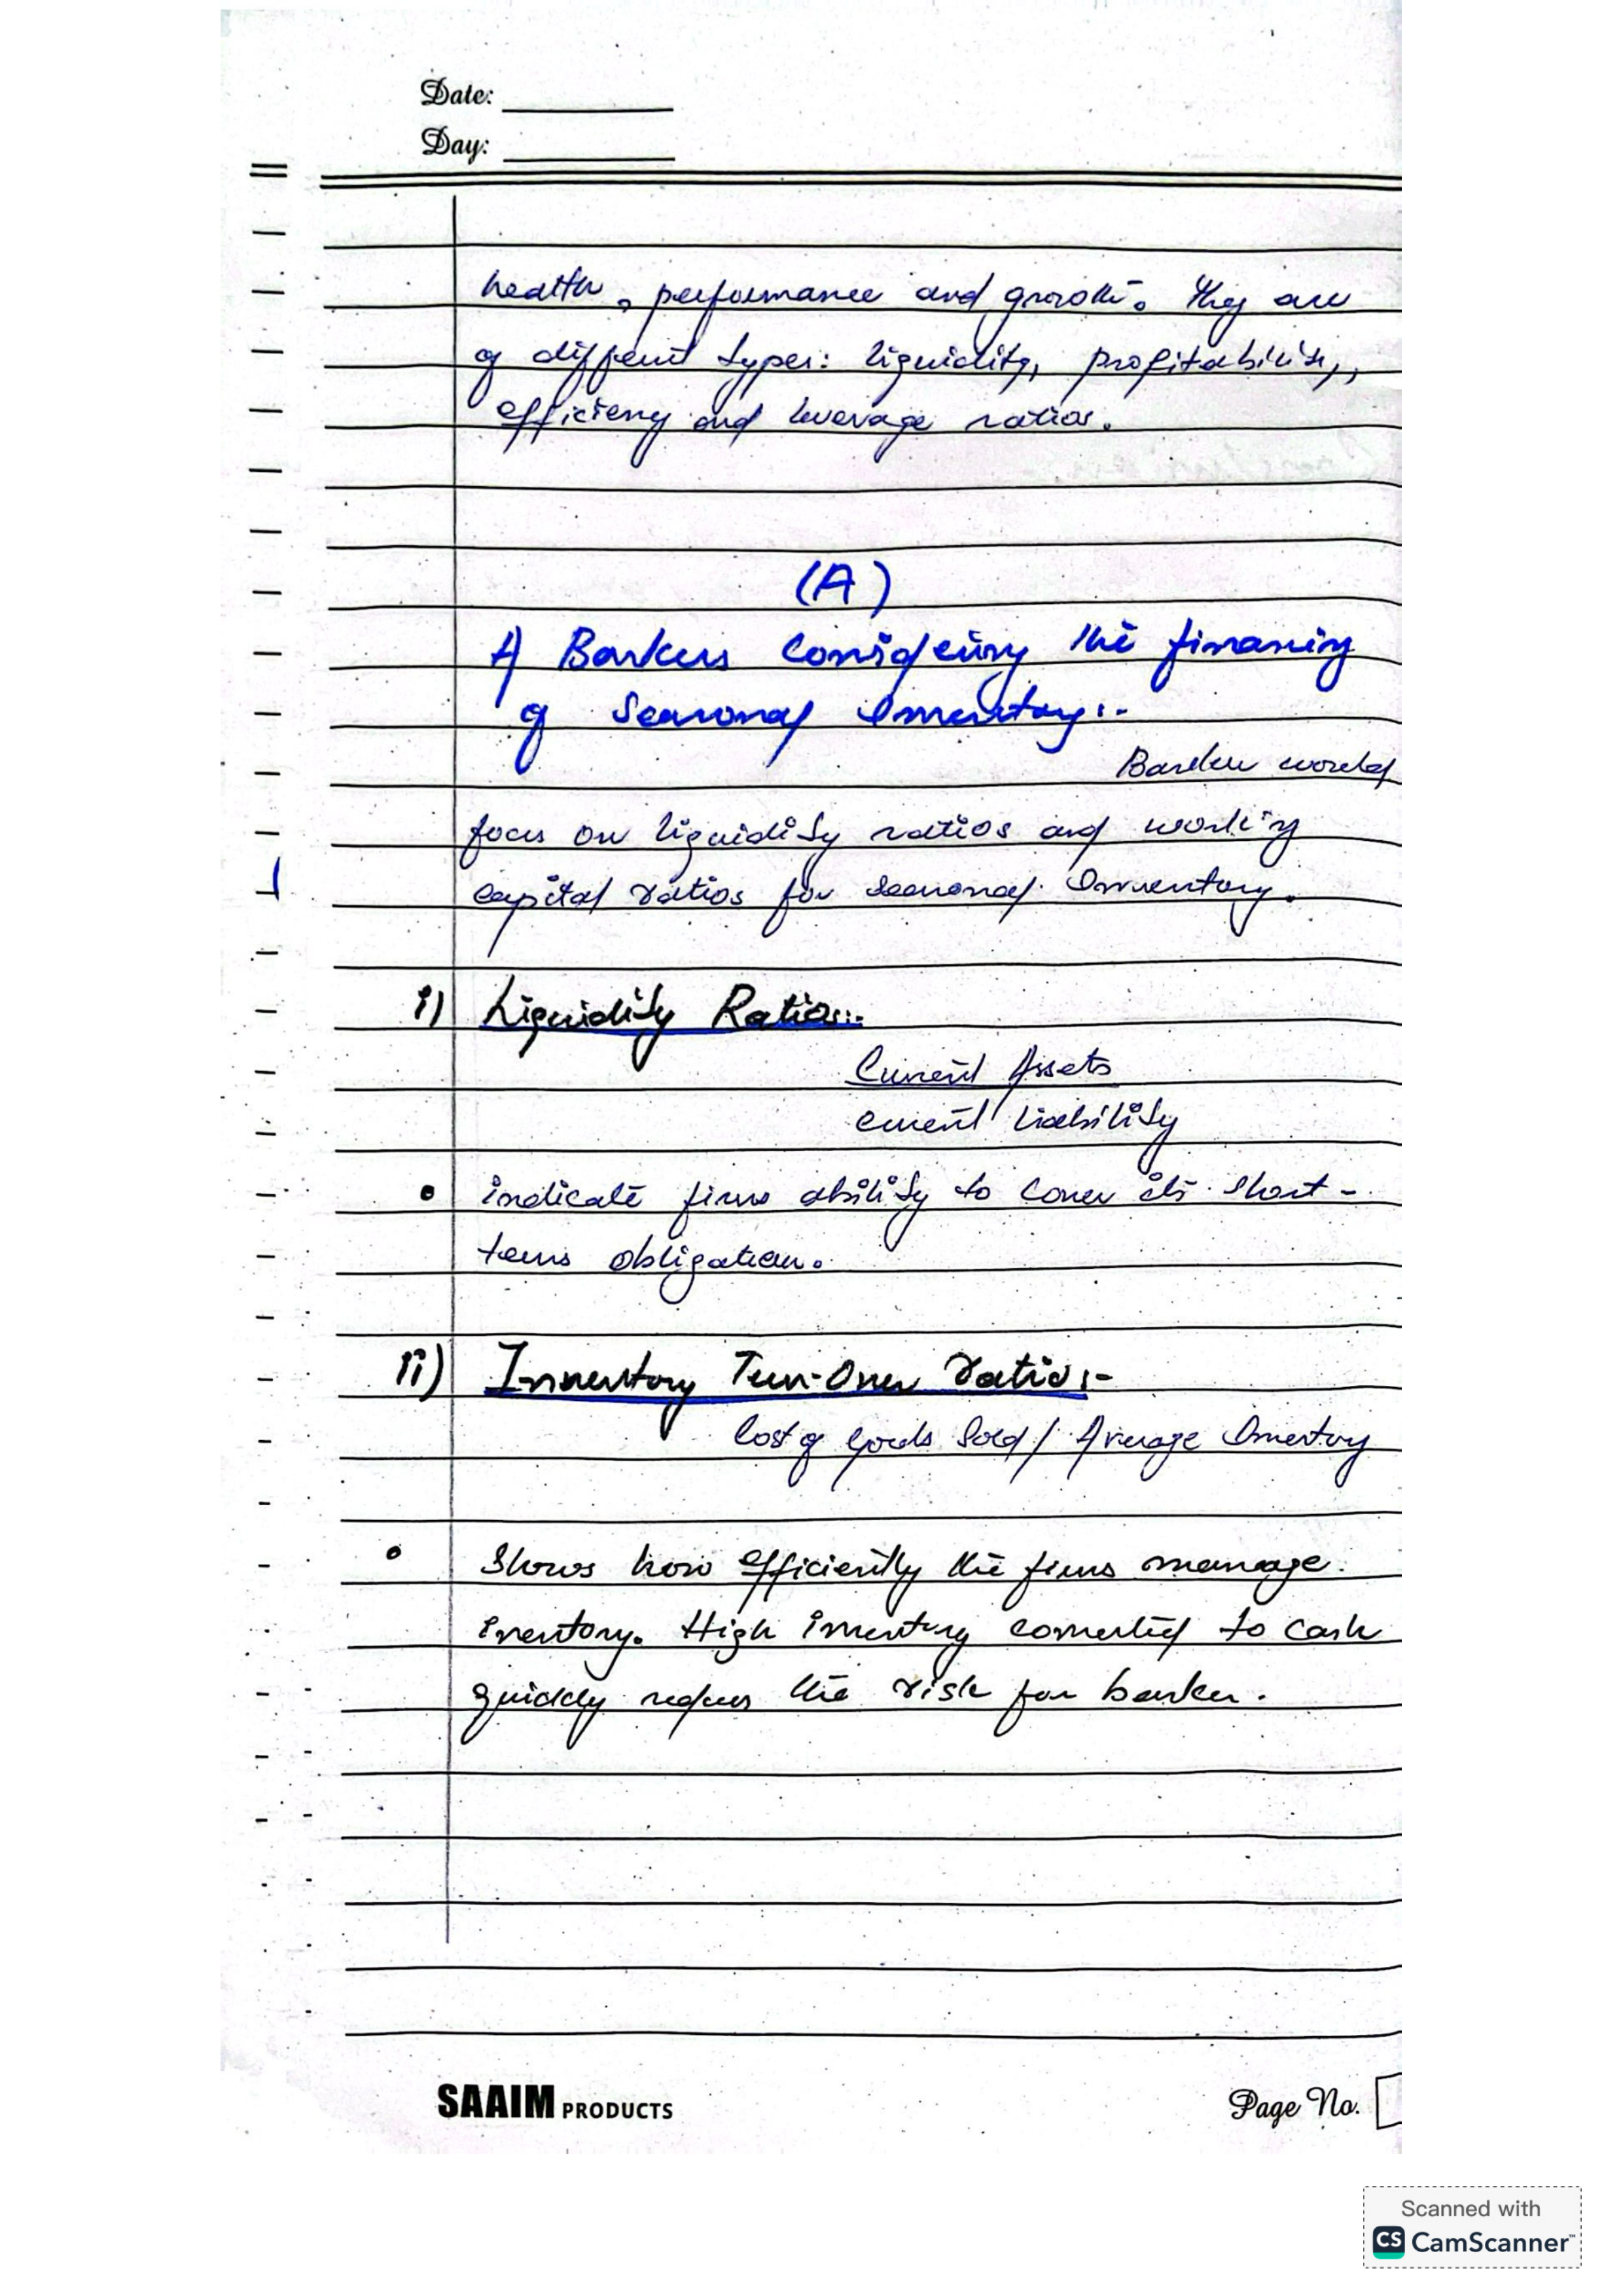 Date:
Day:
health, performance and growth. They are
of different types: liquidity, profitability,
efficiency and leverage ratios.
(A)
A Bankers Considering the financing
of Seasonal Inventory:-
Banker would
focus on liquidity ratios and working
capital ratios for seasonal Inventory.
i) Liquidity Ratio:-
Current Assets
Current Liability
• indicate firms ability to cover its short-
term obligation.
ii) Inventory Turn-Over ratio:-
Cost of goods Sold / Average Inventory
• Shows how efficiently the firms manage
inventory. High inventory converted to cash
quickly reduces the risk for banker.
SAAIM PRODUCTS
Page No.
Scanned with
CS CamScanner